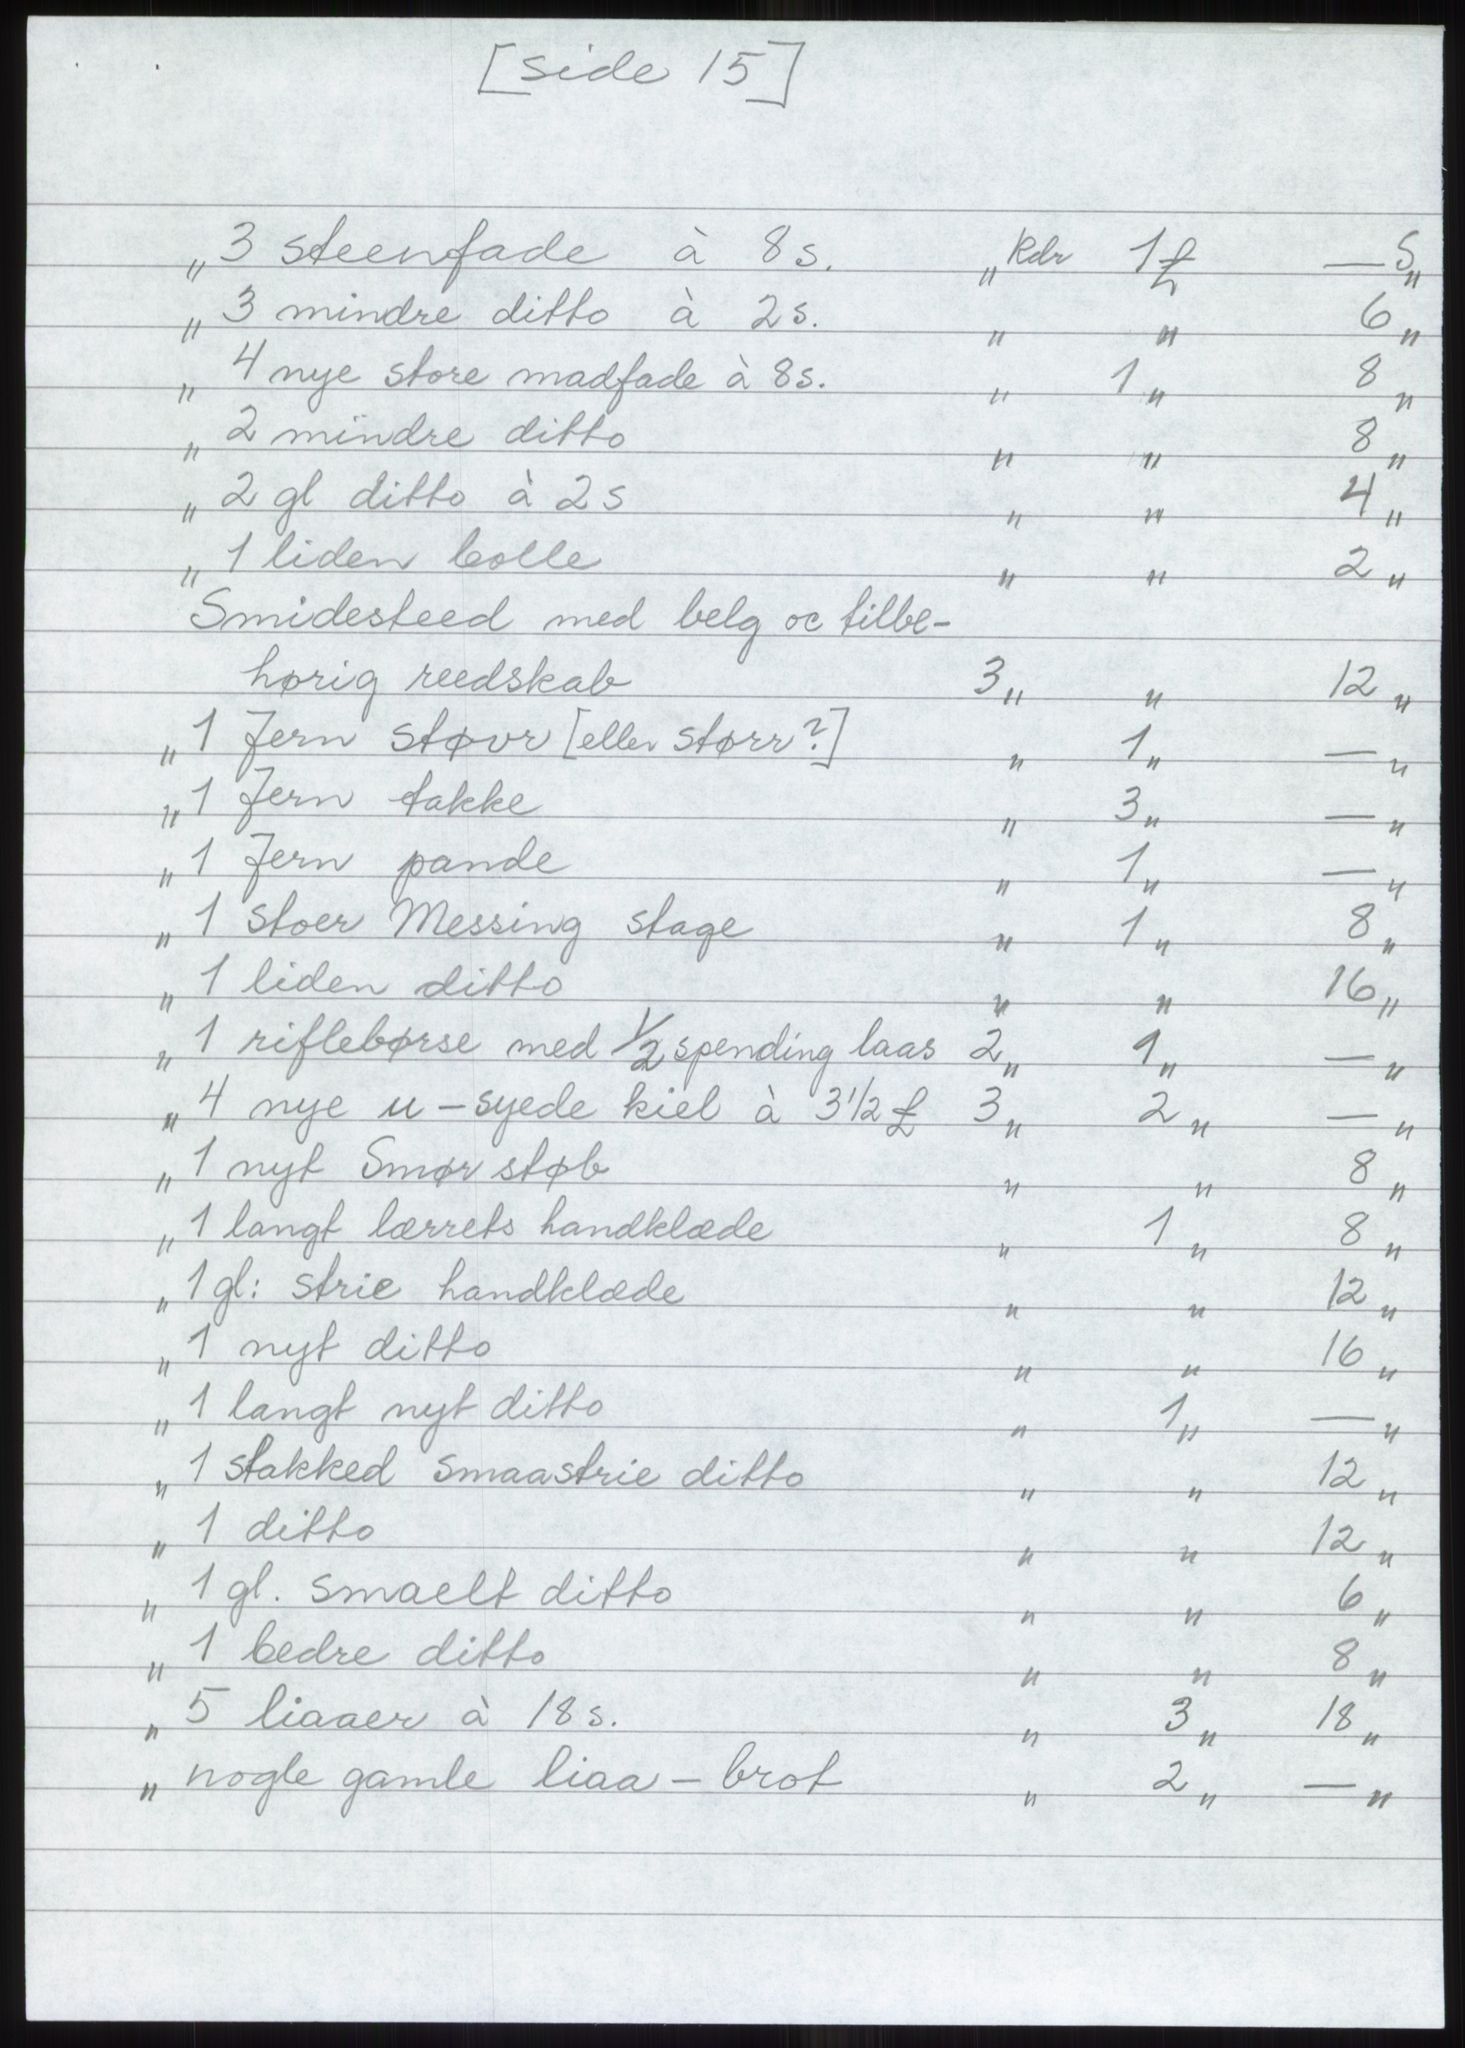 [side 15]
„ 3 steenfade à 8 s. „ Rdr 1 £ — s „
„ 3 mindre ditto à 2 s. „ „ 6 „
„ 4 nye store madfade à 8 s. „ 1 „ 8 „
„ 2 mindre ditto „ „ 8 „
„ 2 gl ditto à 2 s „ „ 4 „
„ 1 liden bolle „ „ 2 „
Smidesteed med belg oc tilbe-
hørig reedskab 3 „ „ 12 „
„ 1 Jern støvr [eller størr?] „ 1 „ — „
„ 1 Jern takke „ 3 „ — „
„ 1 Jern pande „ 1 „ — „
„ 1 stoer Messing stage „ 1 „ 8 „
„ 1 liden ditto „ „ 16 „
„ 1 riflebørse med 1/2 spending laas 2 „ 1 „ — „
„ 4 nye u-syede kiel à 3 1/2 £ 3 „ 2 „ — „
„ 1 nyt Smør støb „ „ 8 „
„ 1 langt lærrets handklæde „ 1 „ 8 „
„ 1 gl: strie handklæde „ „ 12 „
„ 1 nyt ditto „ „ 16 „
„ 1 langt nyt ditto „ 1 „ — „
„ 1 stakked smaastrie ditto „ „ 12 „
„ 1 ditto „ „ 12 „
„ 1 gl. smaelt ditto „ „ 6 „
„ 1 bedre ditto „ „ 8 „
„ 5 liaaer à 18 s. „ 3 „ 18 „
„ nogle gamle liaa-brot „ 2 „ — „